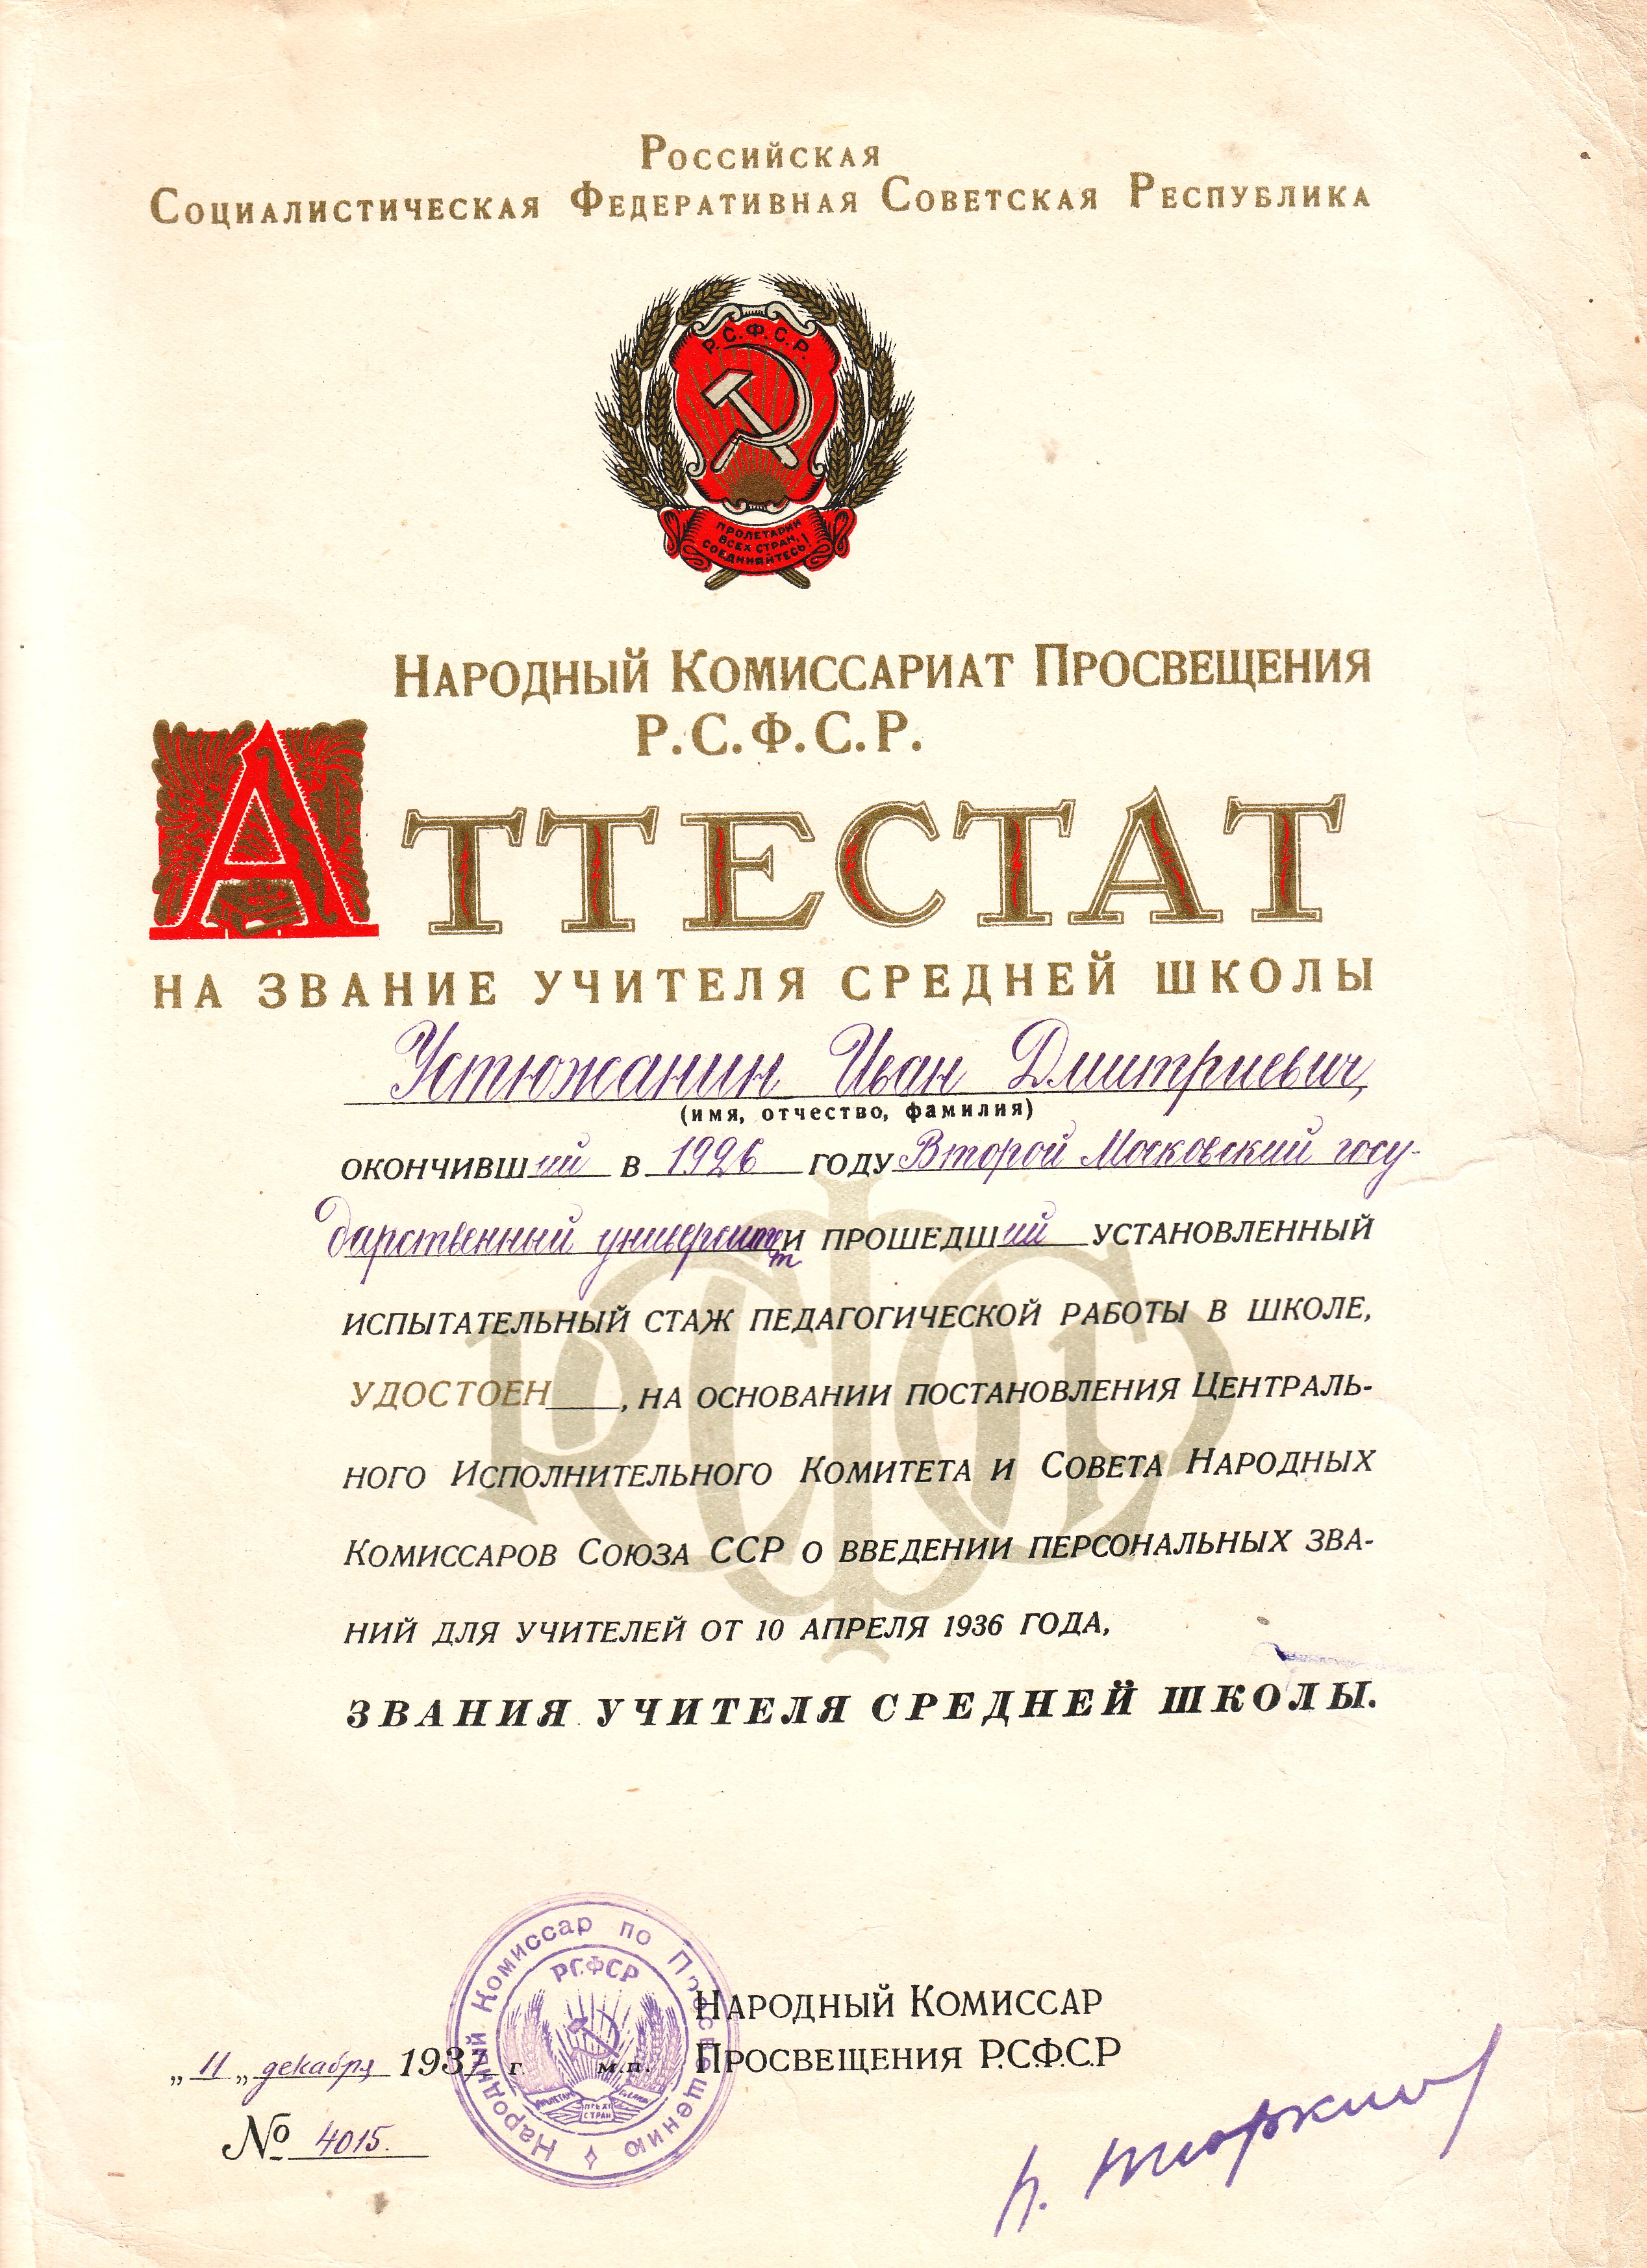 Российская
Социалистическая Федеративная Советская Республика
Р.С.Ф.С.Р.
ПРОЛЕТАРИИ
ВСЕХ СТРАН,
СОЕДИНЯЙТЕСЬ!
Народный Комиссариат Просвещения
Р.С.Ф.С.Р.
АТТЕСТАТ
НА ЗВАНИЕ УЧИТЕЛЯ СРЕДНЕЙ ШКОЛЫ
Устюжанин Иван Дмитриевич,
(имя, отчество, фамилия)
ОКОНЧИВШИЙ В 1926 ГОДУ Второй Московский госу-
дарственный университет И ПРОШЕДШИЙ УСТАНОВЛЕННЫЙ
ИСПЫТАТЕЛЬНЫЙ СТАЖ ПЕДАГОГИЧЕСКОЙ РАБОТЫ В ШКОЛЕ,
УДОСТОЕН____, НА ОСНОВАНИИ ПОСТАНОВЛЕНИЯ ЦЕНТРАЛЬ-
НОГО ИСПОЛНИТЕЛЬНОГО КОМИТЕТА И СОВЕТА НАРОДНЫХ
КОМИССАРОВ СОЮЗА ССР О ВВЕДЕНИИ ПЕРСОНАЛЬНЫХ ЗВА-
НИЙ ДЛЯ УЧИТЕЛЕЙ ОТ 10 АПРЕЛЯ 1936 ГОДА,
ЗВАНИЯ УЧИТЕЛЯ СРЕДНЕЙ ШКОЛЫ.
Народный Комиссар по Просвещению
РСФСР
НАРОДНЫЙ КОМИССАР
ПРОСВЕЩЕНИЯ Р.С.Ф.С.Р
„11„ декабря 1937 г. м.п.
№ 4015.
П. Тюркин